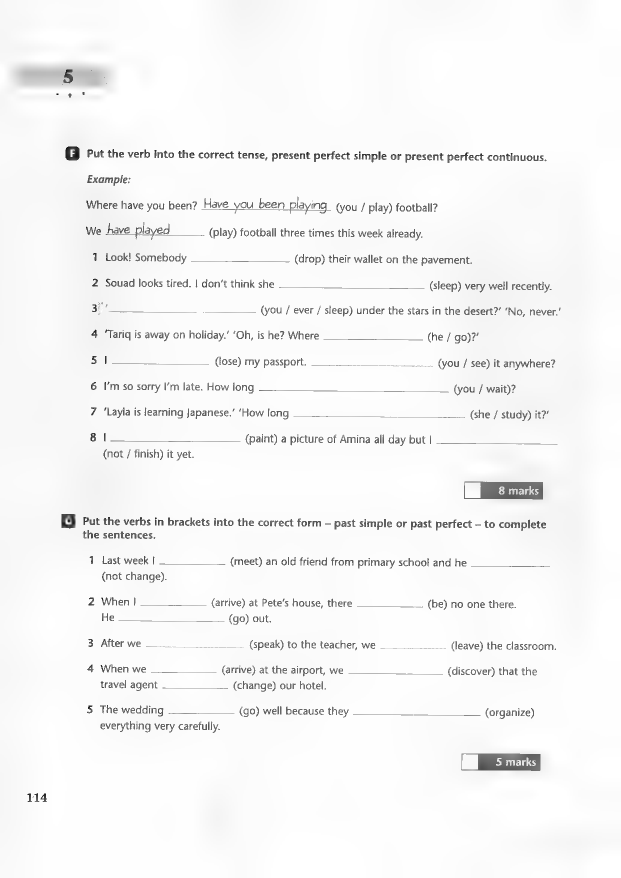 5
F Put the verb into the correct tense, present perfect simple or present perfect continuous.
Example:
Where have you been? Have you been playing (you / play) football?
We have played (play) football three times this week already.
1 Look! Somebody ____ (drop) their wallet on the pavement.
2 Souad looks tired. I don't think she ____ (sleep) very well recently.
3 '____ ____ (you / ever / sleep) under the stars in the desert?' 'No, never.'
4 'Tariq is away on holiday.' 'Oh, is he? Where ____ (he / go)?'
5 I ____ (lose) my passport. ____ (you / see) it anywhere?
6 I'm so sorry I'm late. How long ____ (you / wait)?
7 'Layla is learning Japanese.' 'How long ____ (she / study) it?'
8 I ____ (paint) a picture of Amina all day but I ____
(not / finish) it yet.
8 marks
G Put the verbs in brackets into the correct form – past simple or past perfect – to complete
the sentences.
1 Last week I ____ (meet) an old friend from primary school and he ____
(not change).
2 When I ____ (arrive) at Pete's house, there ____ (be) no one there.
He ____ (go) out.
3 After we ____ (speak) to the teacher, we ____ (leave) the classroom.
4 When we ____ (arrive) at the airport, we ____ (discover) that the
travel agent ____ (change) our hotel.
5 The wedding ____ (go) well because they ____ (organize)
everything very carefully.
5 marks
114